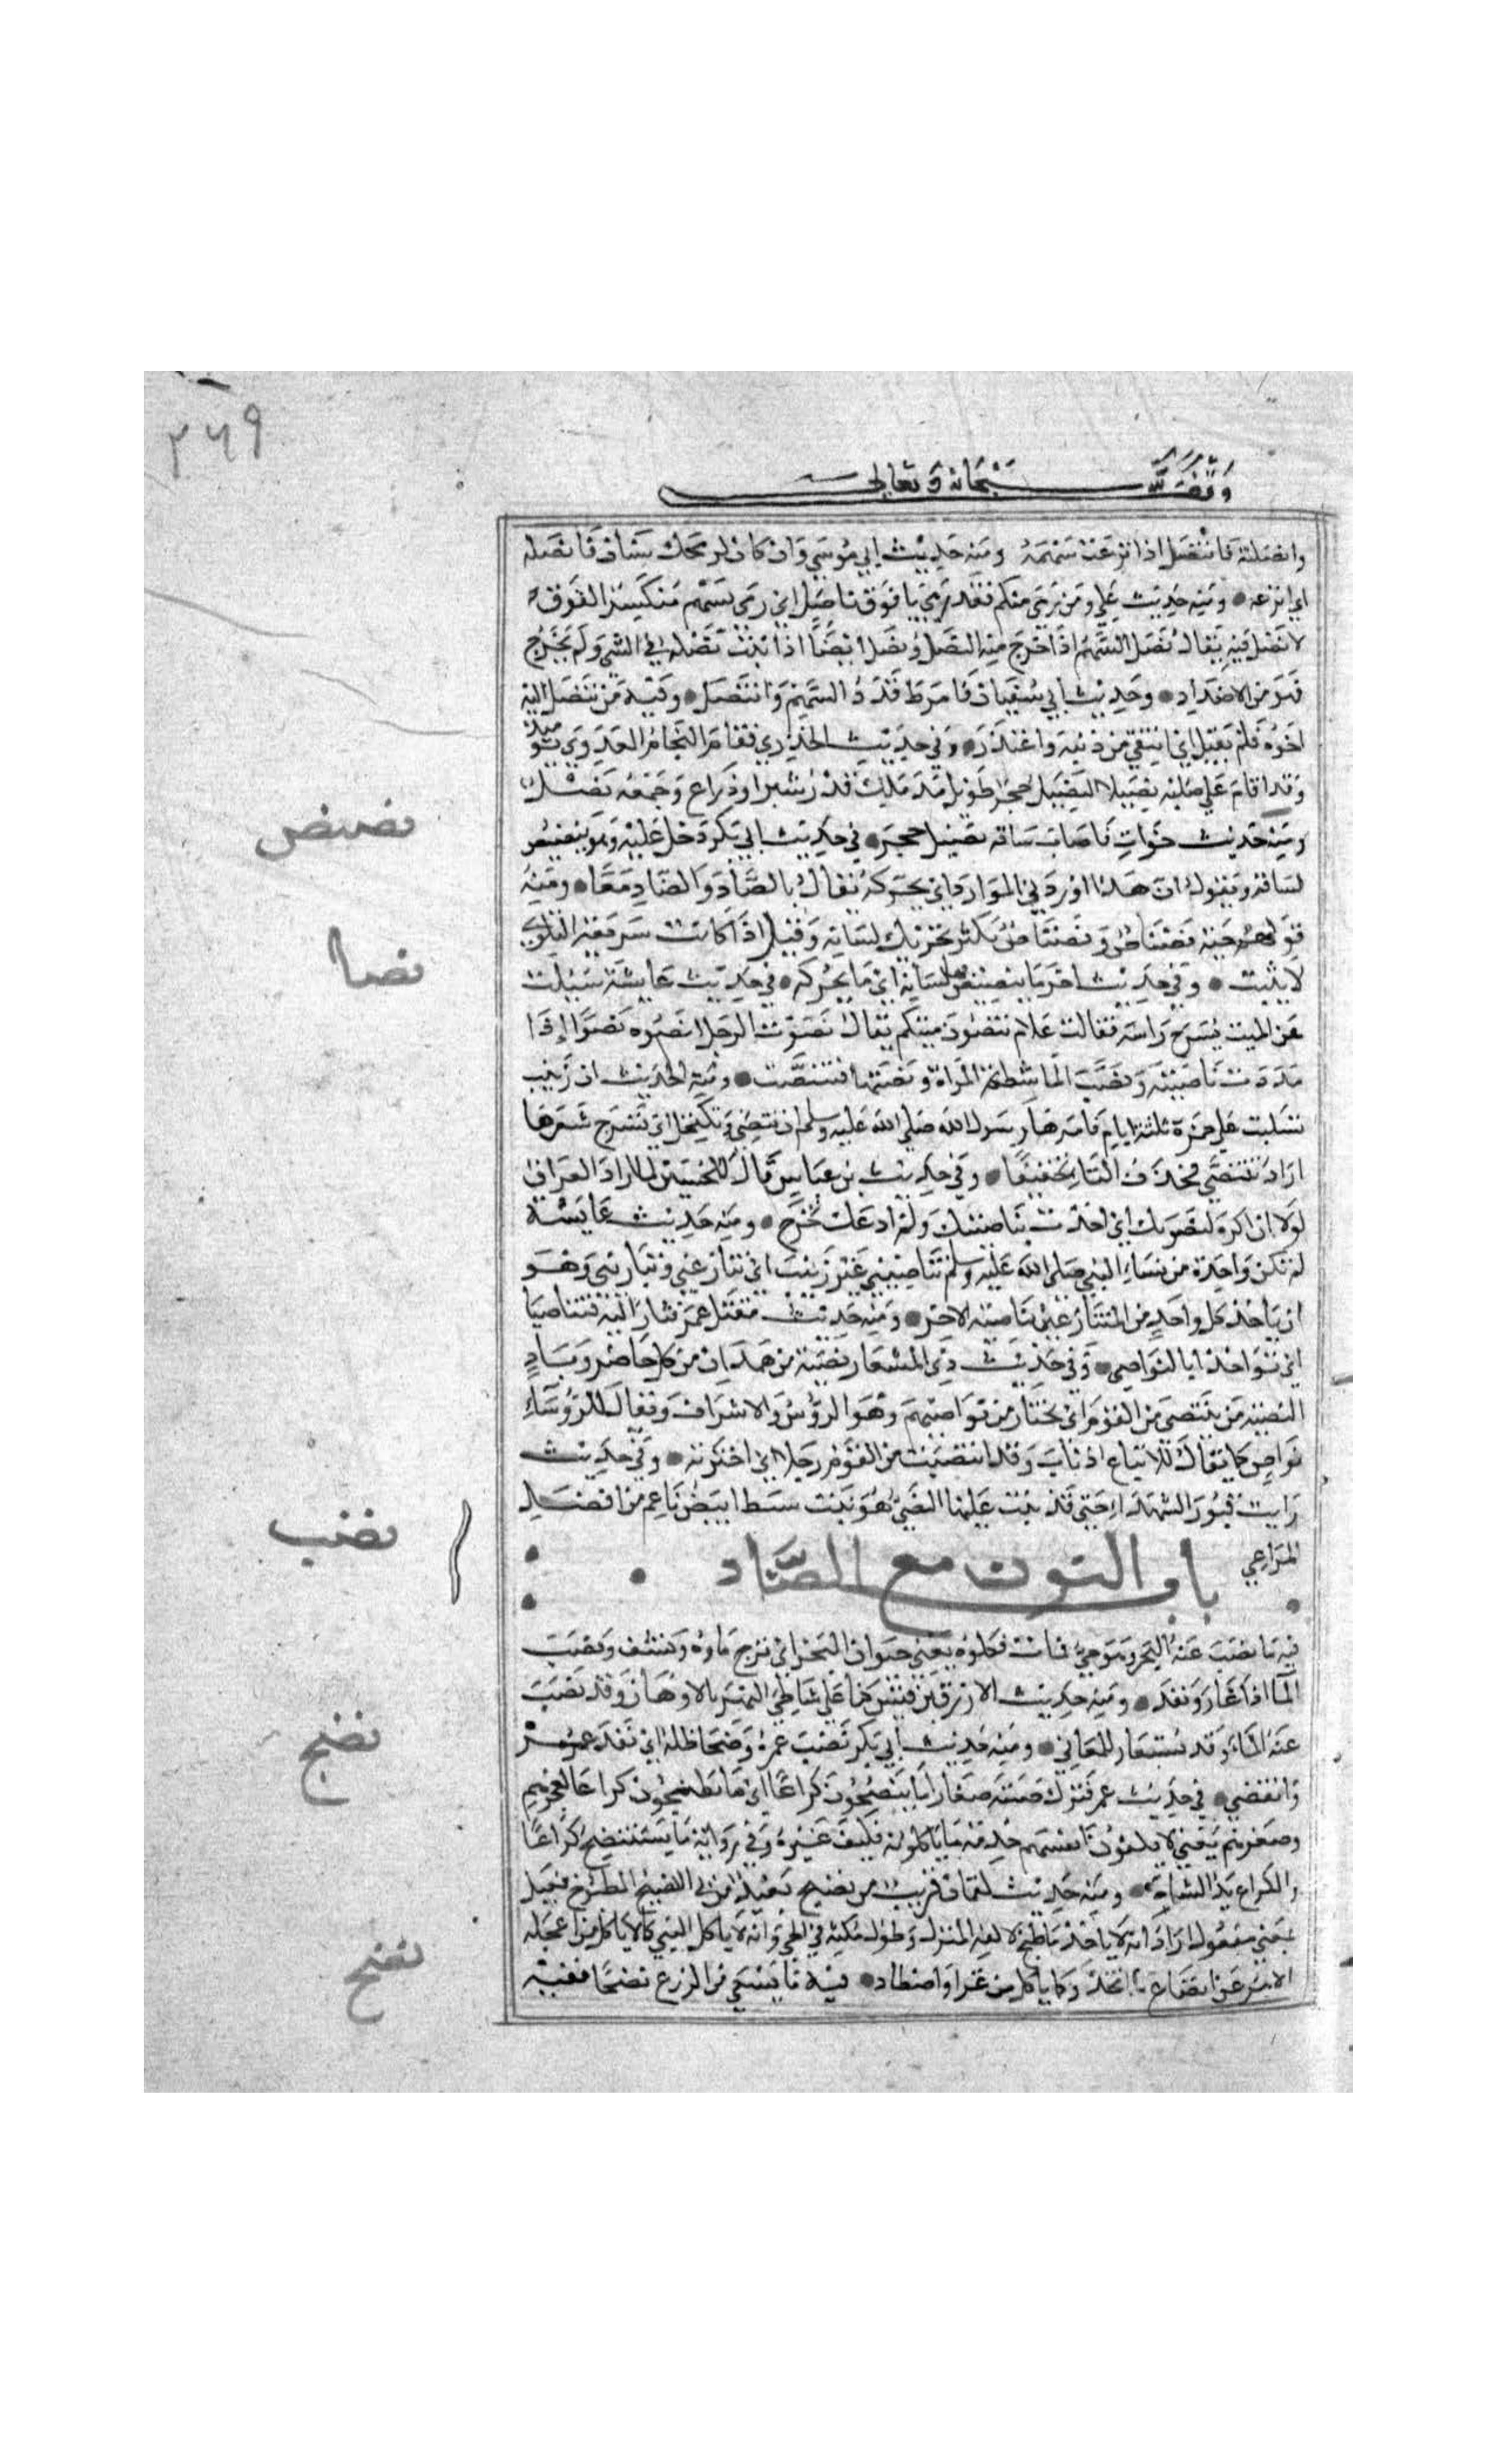 ٢٦٩
وقف لله سبحانه وتعالى
وانصلته فانتصل اذا نزعت سهمه ومنه حديث ابي موسى وان كان لرمحك سنان فانصله
اي انزعه ومنه حديث علي ومن رمى منكم فقد رمى بافوق ناصل اي رمى بسهم منكسر الفوق
لا نصل فيه يقال نصل السهم اذا خرج منه النصل ونصل ايضا اذا ثبت نصله في الشي ولم يخرج
فهو من الاضداد وحديث ابي سفيان فامرط قذذ السهم وانتصل وفيه من تنصل اليه
اخوه فلم يقبل اي انتفى من ذنبه واعتذر وفي حديث الخدري فقام النحام العدوي يوميذ
وقد اقام على صلبه نصيلا النصيل حجر طويل مدملك قدر شبر او ذراع وجمعه نصل
ومنه حديث خوات فاصاب ساقه نصيل حجر في حديث ابي بكر دخل عليه وهو ينصنص
لسانه ويقول ان هذا اوردني الموارد اي يحركه يقال بالصاد والضاد معا ومنه
قولهم حية نصناص ونضناض يكثر تحريك لسانه وقيل اذا كانت سريعة التلوي
لا تثبت وفي حديث اخر ما ينصنص بها لسانه اي ما يحركه في حديث عايشة سيلت
عن الميت يسرح راسه فقالت علام تنصون ميتكم يقال نصوت الرجل انصوه نصوا اذا
مددت ناصيته ونصت الماشطة المراة ونصتها فتنصت ومنه الحديث ان زينب
تسلبت على حمزة ثلثة ايام فامرها رسول الله صلى الله عليه وسلم ان تنصى وتكتحل اي تسرح شعرها
اراد تتنصى فحذف التا تخفيفا وفي حديث بن عباس قال للحسين لما اراد العراق
لولا اني اكره لنصوتك اي اخذت بناصيتك ولم ادعك تخرج ومنه حديث عايشة
لم تكن واحدة من نساء النبي صلى الله عليه وسلم تناصيني غير زينب اي تنازعني وتباريني وهو
ان ياخذ كل واحد من المتنازعين بناصية الاخر ومنه حديث مقتل عمر فثار اليه فتناصيا
اي تواخذا بالنواصي وفي حديث ذي المشعار نصية من همدان من كل حاضر وباد
النصية من ينتصى من القوم اي يختار من نواصيهم وهو الرؤس والاشراف ويقال للرؤساء
نواص كما يقال للاتباع اذناب وقد انتصيت من القوم رجلا اي اخترته وفي حديث
رايت قبور الشهداء جثى قد نبت عليها النصي هو نبت سبط ابيض ناعم من افضل
المراعي
باب النون مع الضاد
فيه ما نضب عنه البحر وهو حي فمات فكلوه يعني حيوان البحر اي نزح ماوه ونشف ونضب
الما اذا غار ونفد ومنه حديث الازرق بن قيس كنا على شاطي النهر بالاهواز وقد نضب
عنه الماء وقد يستعار للمعاني ومنه حديث ابي بكر نضب عمره وضحا ظله اي نفد عمره
وانقضى في حديث عمر فترك صبية صغارا ما ينضجون كراعا اي ما يطبخون كراعا لعجزهم
وصغرهم يعني لا يكفون انفسهم خدمة ما ياكلونه فكيف غيره وفي رواية ما يستنضج كراعا
والكراع يد الشاة ومنه حديث لقمان قريب من نضيج بعيد من ني النضيج المطبوخ فعيل
بمعنى مفعول اراد انه لا ياخذ ما طبخ لالفه المنزل وطول مكثه في الحي وانه لا ياكل الني كما ياكل من اعجله
الامر عن انضاج ما اتخذ وكما ياكل من غزا واصطاد فيه ما يسقى من الزرع نضحا ففيه
نصنص
نصا
نضب
نضج
نضح